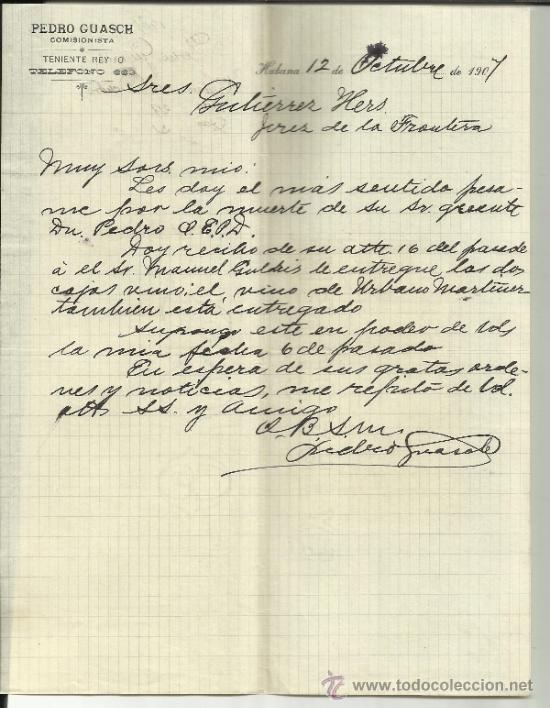 PEDRO GUASCH
COMISIONISTA
TENIENTE REY 10
TELEFONO 663
Habana 12 de Octubre de 1907
Sres. Gutiérrez Hers.
Jerez de la Frontera
Muy Sors. mio:
Les doy el más sentido pesa-
me por la muerte de su Sr. gerente
Dn. Pedro Q.E.P.D.
Doy recibo de su att. 16 del pasado
á el Sr. Manuel le entregue las dos
cajas vino; el vino de Urbano Martinez
también está entregado
Supongo este en poder de Vds
la mia fecha 6 de pasado
En espera de sus gratas orde-
nes y noticias, me repito de Vd.
att. SS. y Amigo
Q.B.S.M.
Pedro Guasch
www.todocoleccion.net